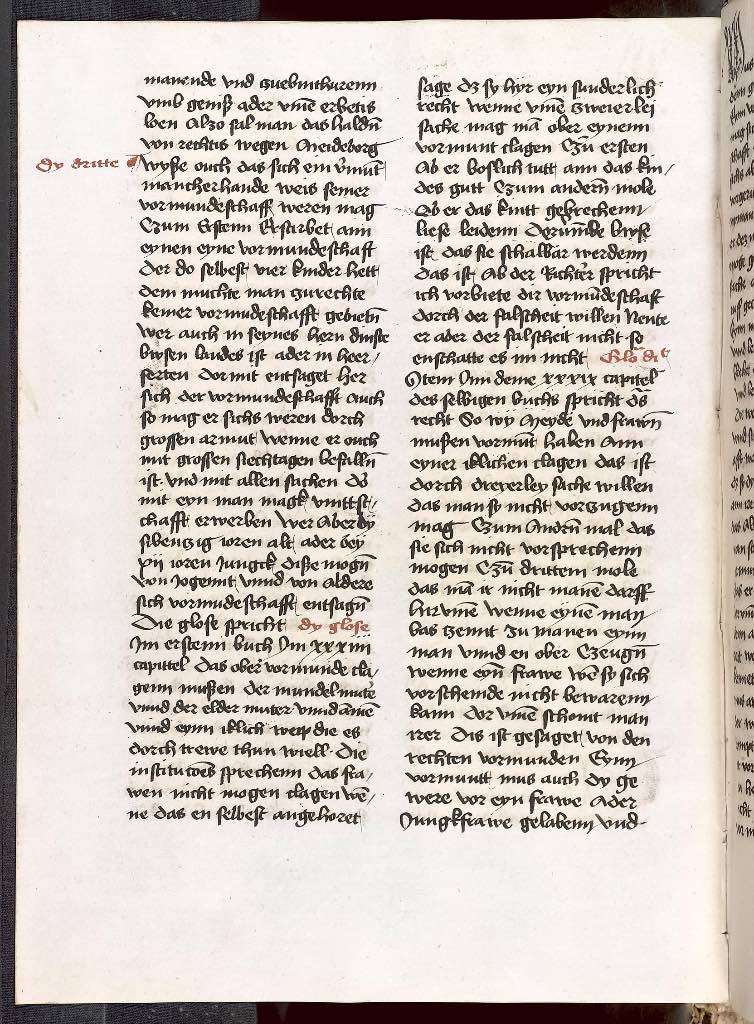 manende vnd zuebinthurenn
vmb geniß ader vm̄e erbetis
lon Alzo sal man das haldn̄
von rechtis wegen Meideborg
dy dritte
wysse ouch das sich ein v̄mūt
mancherhande weis seiner
vormundeschafft weren mag
Czum Ersten Erstirbet ann
eynen eyne vormundeschaft
Der do selbest vier kinder hett
dem muchte man zurechte
keiner vormundeschafft gebietn̄
wer auch in seynes hern dinste
bwsen landes ist ader in heer/
ferten dormit entsaget her
sich der vormundeschafft Auch
so mag er sichs weren dorch
grossen armut wenne er ouch
mit grossen siechtagen befalln̄
ist vnd mit allen sachen Do
mit eyn man magk
schafft erwerben wer Aber
sibenczig ioren alt ader bey
xij ioren Jungck diße mogn̄
von Jogennt vnnd von aldere
sich vormundeschafft entsagn̄
Die glose spricht dy glose
Im ersten buch Im xxxiiij
capittel Das ober vormunde cla/
genn mußen Der mundel muter
vnnd der elder muter vnnd
vnnd eynn iklich weip die es
dorch trewe thun wiell Die
institucōes sprechenn das fra/
wen nicht mogen clagen wē/
ne das en selbest angehoret
sage Das sy hyr eyn sunderlich
recht wenne vm̄e zweierlei
sache mag mā ober eynenn
vormunt clagen Czu ersten
Ab er boslich tutt ann das kin/
des gutt Czum andern̄ mole
Ab er das kintt gebrechenn
liese leidenn Derumbe bwse
ist das sie schalbar werdenn
das ist Ab der Richter spricht
ich vorbiete dir vormūdeschaft
dorch der falscheit willen Nente
er ader der falscheit nicht so
enschatte es im nicht Glō dt
Item Inn deme xxxix capitel
des selbigen buchs spricht das
recht So wy Meyde vnd frawn̄
mußen vormūt haben Ann
eyner iklichen clagen das ist
dorch dreyerley sache willen
das man so nicht vorzugenn
mag Czum Andrn̄ mal das
sie sich nicht vorsprechenn
mogen Czū drittem mole
das mā ir nicht manē darff
hirvmē wenne eynen man
bas zemt zu manen eynn
man vnnd en ober Czeugn̄
wenne eyn frawe wē sy sich
vorscheinde nicht bewarenn
kann Dor vmē schont man
irer Dis ist gesaget von den
rechten vormunden Eynn
vormuntt mus auch dy ge
were vor eyn frawe Ader
Jungkfrawe gelabenn vnd